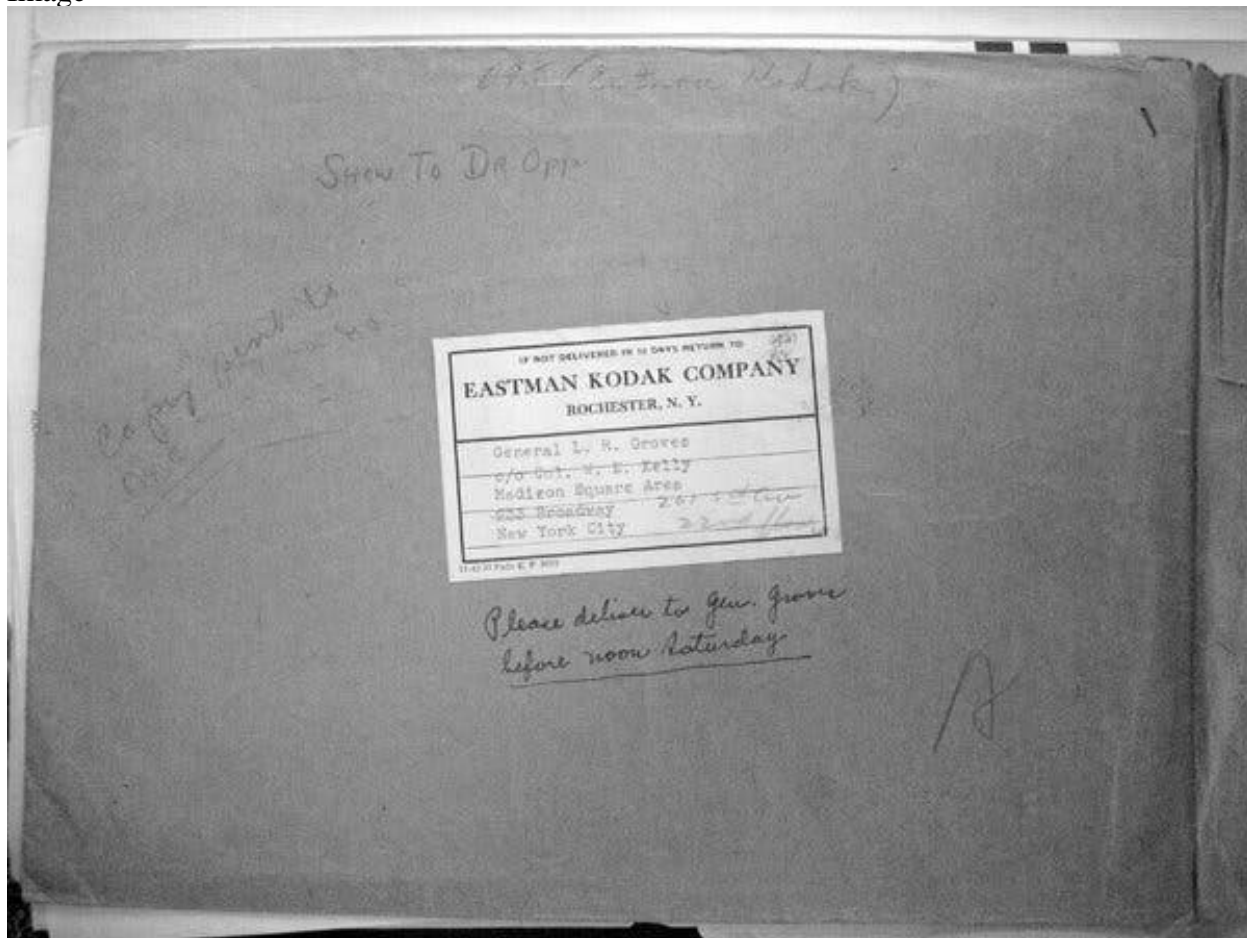 Image
(Eastman Kodak)
SHOW TO DR OPP
copy sent to
IF NOT DELIVERED IN 10 DAYS RETURN TO
EASTMAN KODAK COMPANY
ROCHESTER, N. Y.
General L. R. Groves
c/o Col. W. E. Kelly
Madison Square Area
Broadway
New York City
22nd floor
Please deliver to Gen. Groves
before noon Saturday
A